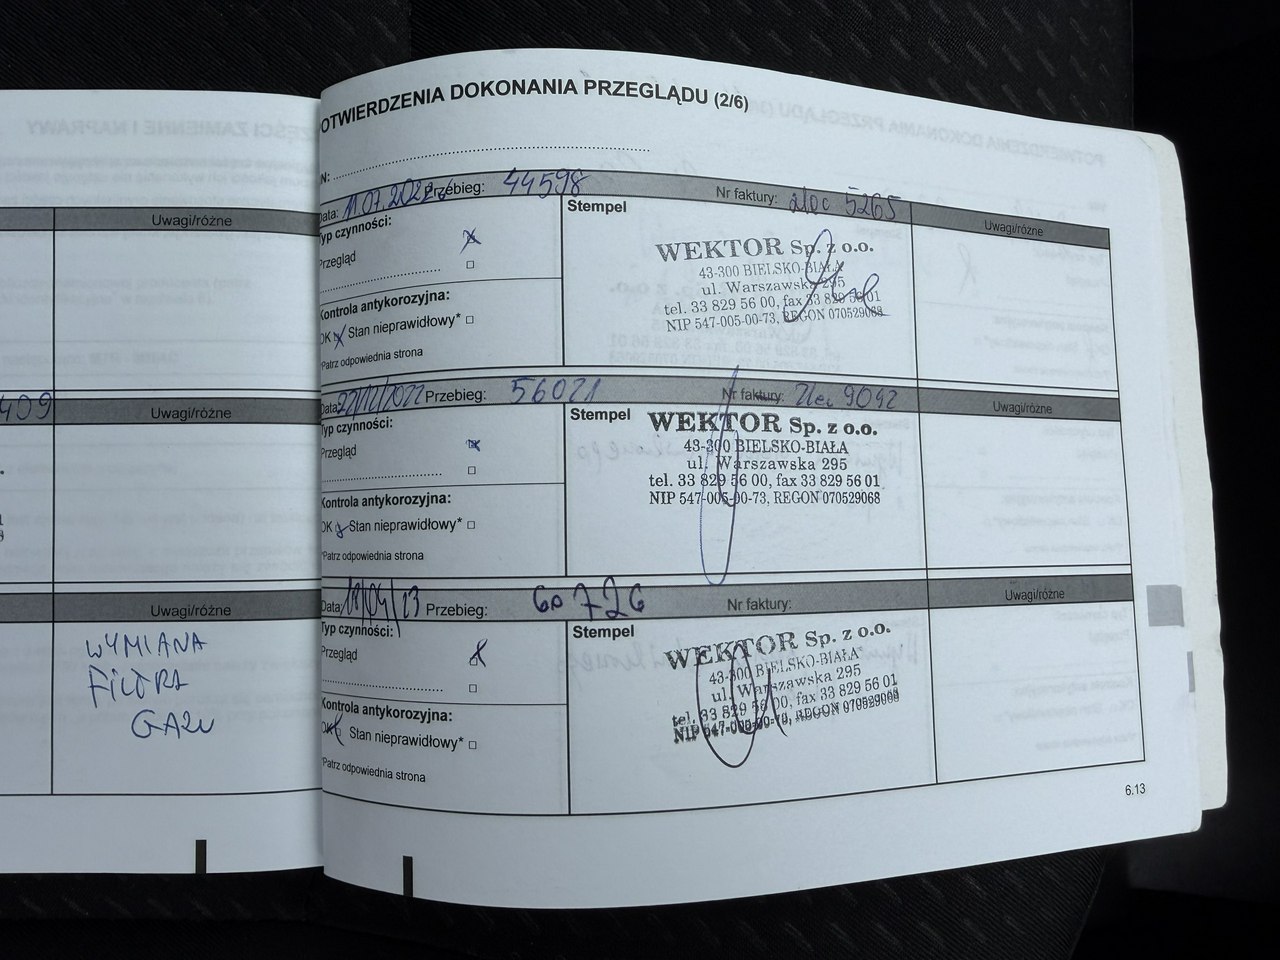 Uwagi/różne
409
Uwagi/różne
Uwagi/różne
WYMIANA
FILTRA
GAZU
OTWIERDZENIA DOKONANIA PRZEGLĄDU (2/6)
N:
Data: 11.07.2022 Przebieg: 44598 Nr faktury: zlec 5265
Typ czynności:
Stempel
Uwagi/różne
Przegląd
Kontrola antykorozyjna:
OK Stan nieprawidłowy*
*Patrz odpowiednia strona
WEKTOR Sp. z o.o.
43-300 BIELSKO-BIAŁA
ul. Warszawska 295
tel. 33 829 56 00, fax 33 829 56 01
NIP 547-005-00-73, REGON 070529068
Data: 22/12/2022 Przebieg: 56021 Nr faktury: Zlec 9092
Typ czynności:
Stempel
Uwagi/różne
Przegląd
Kontrola antykorozyjna:
OK Stan nieprawidłowy*
*Patrz odpowiednia strona
WEKTOR Sp. z o.o.
43-300 BIELSKO-BIAŁA
ul. Warszawska 295
tel. 33 829 56 00, fax 33 829 56 01
NIP 547-005-00-73, REGON 070529068
Data: 18/04/23 Przebieg: 60726 Nr faktury:
Typ czynności:
Stempel
Uwagi/różne
Przegląd
Kontrola antykorozyjna:
OK Stan nieprawidłowy*
*Patrz odpowiednia strona
WEKTOR Sp. z o.o.
43-300 BIELSKO-BIAŁA
ul. Warszawska 295
tel. 33 829 56 00, fax 33 829 56 01
NIP 547-005-00-73, REGON 070529068
6.13